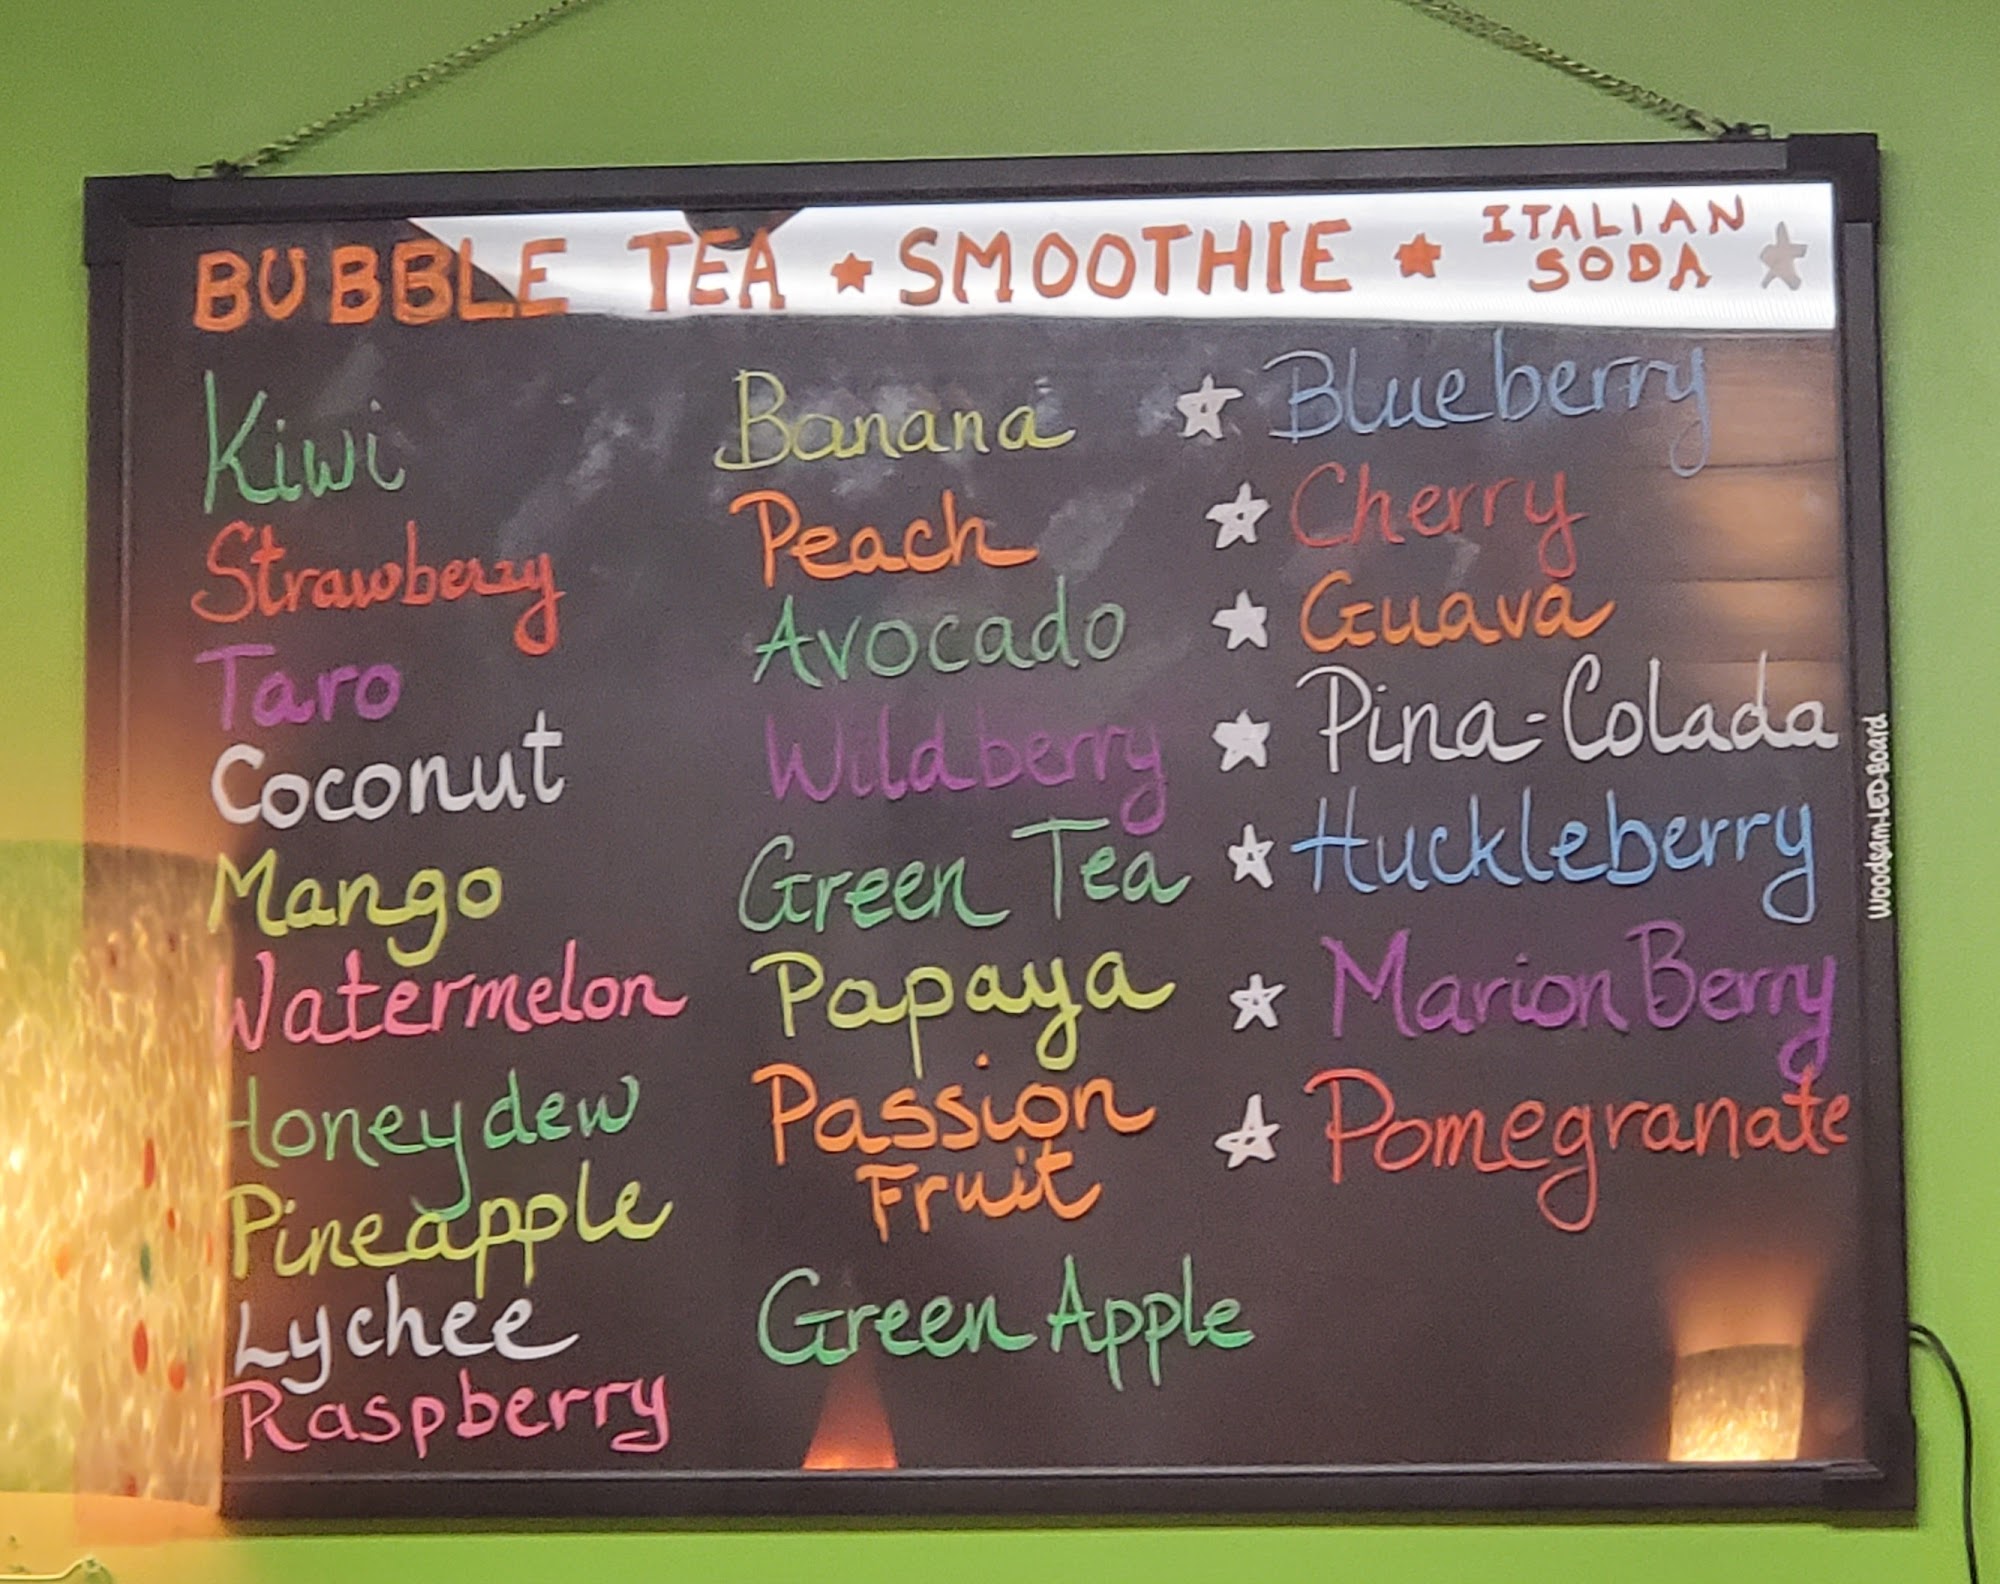 BUBBLE TEA ★ SMOOTHIE ★ ITALIAN SODA ★
Kiwi
Strawberry
Taro
Coconut
Mango
Watermelon
Honeydew
Pineapple
Lychee
Raspberry
Banana
Peach
Avocado
Wildberry
Green Tea
Papaya
Passion
Fruit
Green Apple
★ Blueberry
★ Cherry
★ Guava
★ Pina-Colada
★ Huckleberry
★ Marion Berry
★ Pomegranate
Woodsam-LED-Board